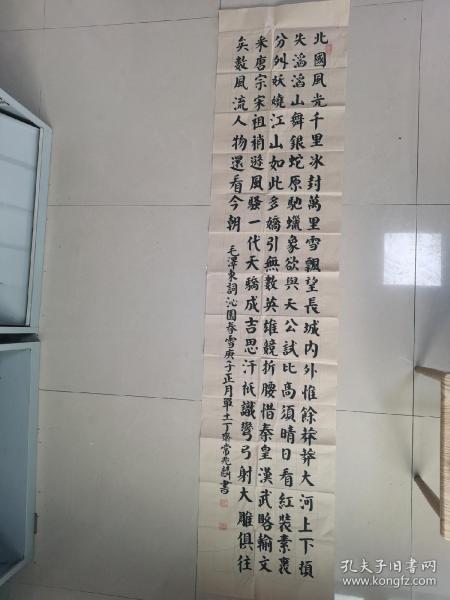 北國風光千里冰封萬里雪飄望長城内外惟餘莽莽大河上下頓
失滔滔山舞銀蛇原馳蠟象欲與天公試比高須晴日看紅裝素裹
分外妖嬈江山如此多嬌引無數英雄競折腰惜秦皇漢武略輸文
采唐宗宋祖稍遜風騷一代天驕成吉思汗衹識彎弓射大雕俱往
矣數風流人物還看今朝
毛澤東詞沁園春雪庚子正月單士丁齋常兆麟書
孔夫子旧书网
www.kongfz.com